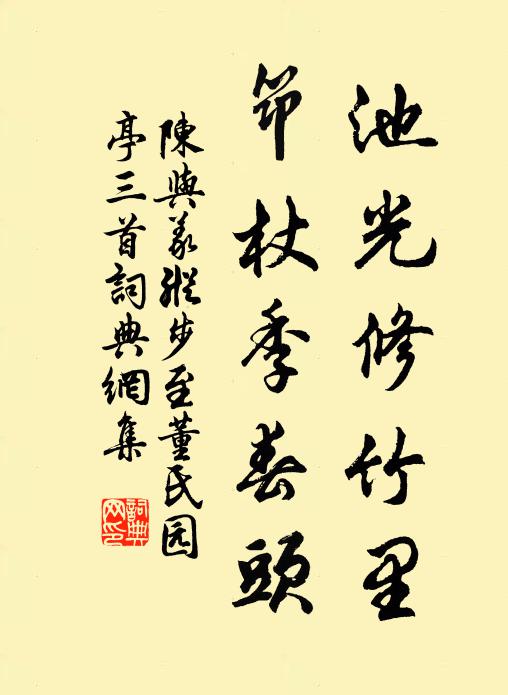 池光修竹里
筇杖季春頭
陳與義縱步至董氏园
亭三首詞典網集
詞典网印